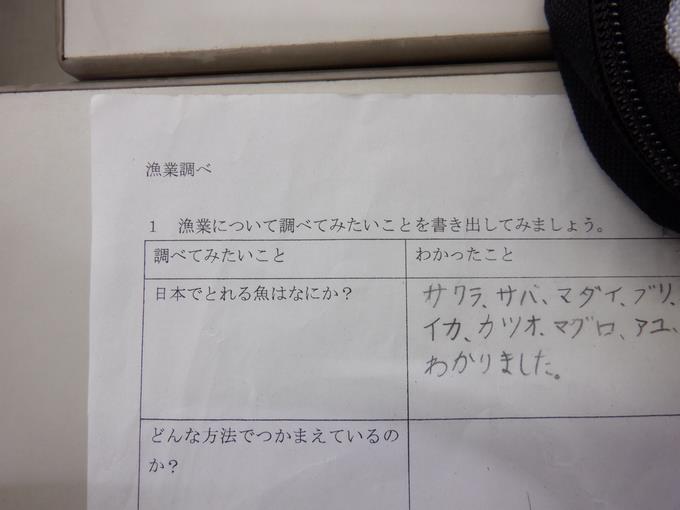 漁業調べ
1 漁業について調べてみたいことを書き出してみましょう。
調べてみたいこと
わかったこと
日本でとれる魚はなにか？
サワラ、サバ、マダイ、ブリ、
イカ、カツオ、マグロ、アユ、
わかりました。
どんな方法でつかまえているの
か？